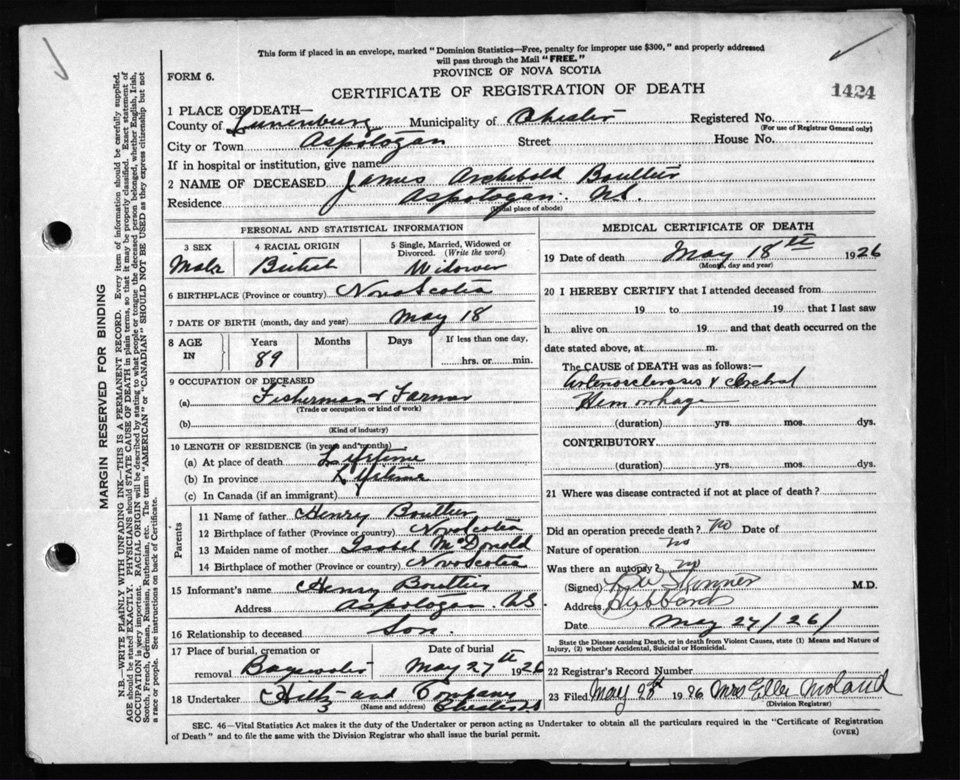 This form if placed in an envelope, marked "Dominion Statistics—Free, penalty for improper use $300," and properly addressed
will pass through the Mail "FREE."
FORM 6.
PROVINCE OF NOVA SCOTIA
CERTIFICATE OF REGISTRATION OF DEATH
1424
1 PLACE OF DEATH—
County of Lunenburg Municipality of Chester Registered No.
(For use of Registrar General only)
City or Town Aspotogan Street House No.
If in hospital or institution, give name
2 NAME OF DECEASED James Archibold Boutlier
Residence Aspotogan. N.S.
(Usual place of abode)
PERSONAL AND STATISTICAL INFORMATION
3 SEX 4 RACIAL ORIGIN 5 Single, Married, Widowed or
Divorced. (Write the word)
Male British Widower
6 BIRTHPLACE (Province or country) Nova Scotia
7 DATE OF BIRTH (month, day and year) May 18
8 AGE IN Years Months Days If less than one day,
89 hrs. or min.
9 OCCUPATION OF DECEASED
(a) Fisherman & Farmer
(Trade or occupation or kind of work)
(b)
(Kind of industry)
10 LENGTH OF RESIDENCE (in years and months)
(a) At place of death Lifetime
(b) In province Lifetime
(c) In Canada (if an immigrant)
Parents
11 Name of father Henry Boutlier
12 Birthplace of father (Province or country) Nova Scotia
13 Maiden name of mother Isabel McDonald
14 Birthplace of mother (Province or country) Nova Scotia
15 Informant's name Henry Boutlier
Address Aspotogan N.S
16 Relationship to deceased Son.
17 Place of burial, cremation or Date of burial
removal Bayswater May 27th 1926
18 Undertaker Hiltz and Company
(Name and address) Chester N.S
MEDICAL CERTIFICATE OF DEATH
19 Date of death May 18th 1926
(Month, day and year)
20 I HEREBY CERTIFY that I attended deceased from
19 to 19 that I last saw
h alive on 19 and that death occurred on the
date stated above, at m.
The CAUSE of DEATH was as follows:—
Arteriosclerosis & Cerebral
Hemorrhage
(duration) yrs. mos. dys.
CONTRIBUTORY
(duration) yrs. mos. dys.
21 Where was disease contracted if not at place of death?
Did an operation precede death? no Date of
Nature of operation no
Was there an autopsy? no
(Signed) Skinner M.D.
Address Hubbards
Date May 27/26/
State the Disease causing Death, or in death from Violent Causes, state (1) Means and Nature of
Injury, (2) whether Accidental, Suicidal or Homicidal.
22 Registrar's Record Number
23 Filed May 28th 1926 Mrs Ella
(Division Registrar)
SEC. 46—Vital Statistics Act makes it the duty of the Undertaker or person acting as Undertaker to obtain all the particulars required in the "Certificate of Registration
of Death" and to file the same with the Division Registrar who shall issue the burial permit.
(OVER)
MARGIN RESERVED FOR BINDING
N.B.—WRITE PLAINLY WITH UNFADING INK—THIS IS A PERMANENT RECORD. Every item of information should be carefully supplied.
AGE should be stated EXACTLY. PHYSICIANS should STATE CAUSE OF DEATH in plain terms, so that it may be properly classified. Exact statement of
OCCUPATION is very important. RACIAL ORIGIN will be described by stating to what people or tongue the deceased person belonged, whether English, Irish,
Scotch, French, German, Russian, Ruthenian, etc. The terms "AMERICAN" or "CANADIAN" SHOULD NOT BE USED as they express citizenship but not
a race or people. See instructions on back of Certificate.